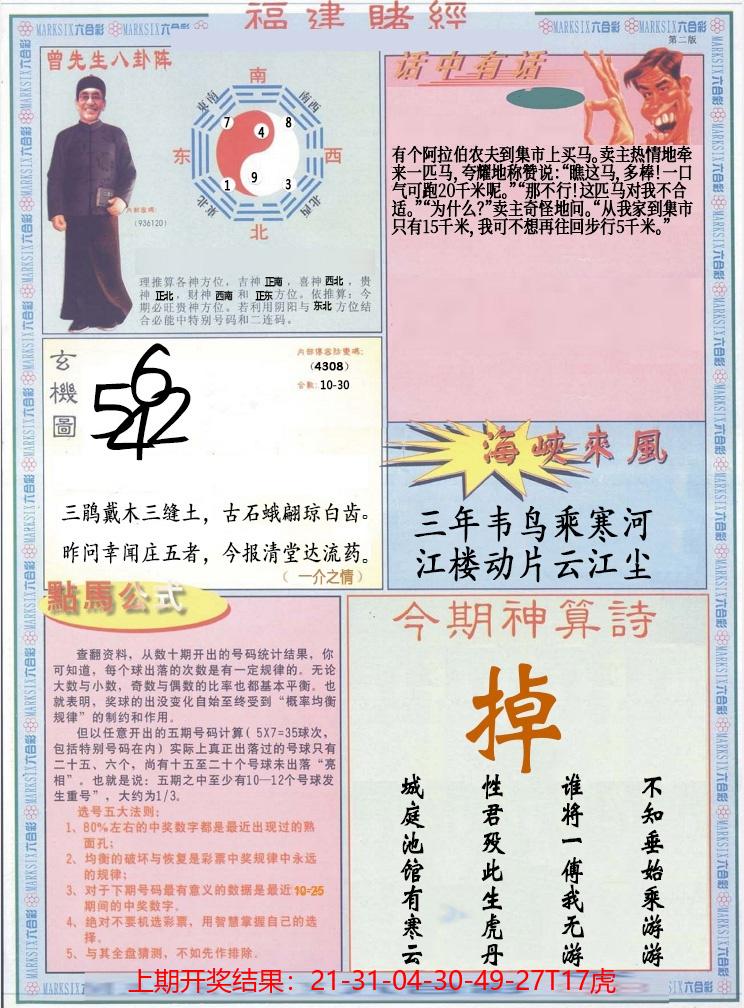 福建賭經
MARKSIX六合彩 MARKSIX六合彩
第二版
曾先生八卦阵
南
东南
南西
7
4
8
东
西
1
9
3
东北
北西
北
(936120)
理推算各神方位，吉神 正南 ，喜神 西北 ，贵
神 正北 ，财神 西南 和 正东 方位。依推算：今
期必旺贵神方位。若利用阴阳与 东北 方位结
合必能中特别号码和二连码。
话中有话
有个阿拉伯农夫到集市上买马。卖主热情地牵
来一匹马,夸耀地称赞说:“瞧这马,多棒!一口
气可跑20千米呢。”“那不行!这匹马对我不合
适。”“为什么?”卖主奇怪地问。“从我家到集市
只有15千米,我可不想再往回步行5千米。”
玄機圖
6
5 2
4
(4308)
合数: 10-30
三鹃戴木三缝土，古石蛾翩琼白齿。
昨问幸闻庄五者，今报清堂达流药。
（ 一介之情 ）
海峽來風
三年韦鸟乘寒河
江楼动片云江尘
點馬公式
查翻资料，从数十期开出的号码统计结果，你
可知道，每个球出落的次数是有一定规律的。无论
大数与小数，奇数与偶数的比率也都基本平衡。也
就表明，奖球的出没变化自始至终受到“概率均衡
规律”的制约和作用。
但以任意开出的五期号码计算( 5X7=35球次，
包括特别号码在内）实际上真正出落过的号球只有
二十五、六个，尚有十五至二十个号球未出落“亮
相”。也就是说：五期之中至少有10—12个号球发
生重号”，大约为1/3。
选号五大法则：
1、80%左右的中奖数字都是最近出现过的熟
面孔；
2、均衡的破坏与恢复是彩票中奖规律中永远
的规律；
3、对于下期号码最有意义的数据是最近10-25
期间的中奖数字。
4、绝对不要机选彩票，用智慧掌握自己的选
择。
5、与其全盘猜测，不如先作排除。
今期神算詩
掉
不知垂始乘游游
谁将一傅我无游
性君殁此生虎丹
城庭池馆有寒云
上期开奖结果：21-31-04-30-49-27T17虎